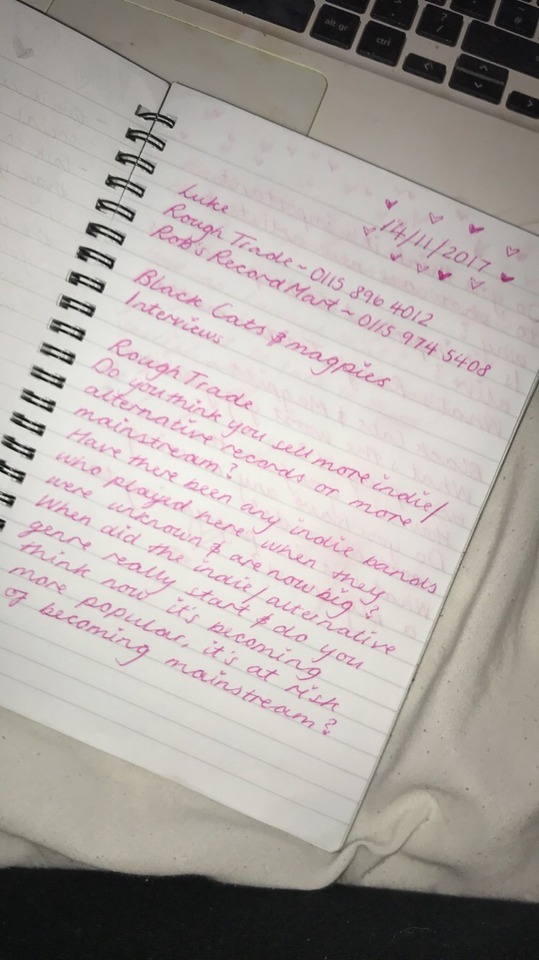 14/11/2017
Luke
Rough Trade ~ 0115 896 4012
Rob's Record Mart ~ 0115 974 5408
Black Cats & magpies
Interviews
Rough Trade
Do you think you sell more indie/
alternative records or more
mainstream?
Have there been any indie bands
who played here when they
were unknown & are now big?
When did the indie/alternative
genre really start & do you
think now it's becoming
more popular, it's at risk
of becoming mainstream?
alt gr
ctrl
?
/